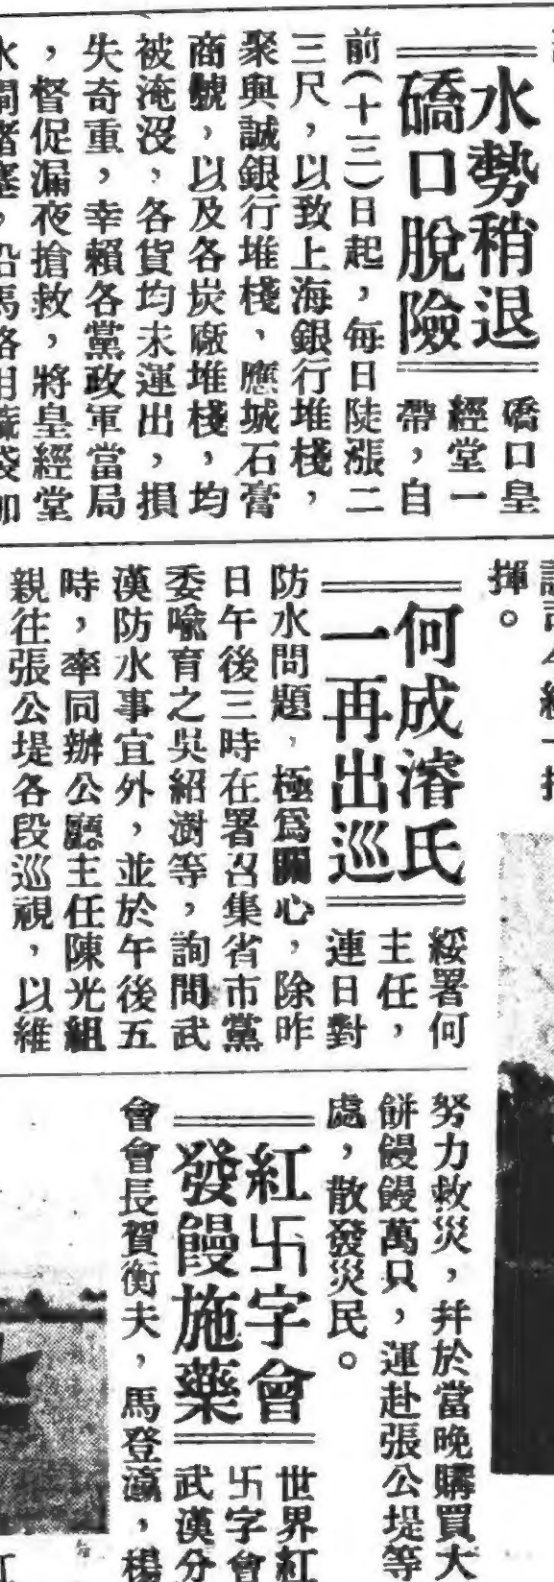 水勢稍退
礄口脫險
礄口皇
經堂一
帶，自
前（十三）日起，每日陡漲二
三尺，以致上海銀行堆棧，
聚興誠銀行堆棧，應城石膏
商號，以及各炭廠堆棧，均
被淹沒，各貨均未運出，損
失奇重，幸賴各黨政軍當局
，督促漏夜搶救，將皇經堂
揮。
何成濬氏
一再出巡
綏署何
主任，
連日對
防水問題，極爲關心，除昨
日午後三時在署召集省市黨
委喻育之吳紹澍等，詢問武
漢防水事宜外，並於午後五
時，率同辦公廳主任陳光組
親往張公堤各段巡視，以維
努力救災，幷於當晚購買大
餅饅饅萬只，運赴張公堤等
處，散發災民。
紅卐字會
發饅施藥
世界紅
卐字會
武漢分
會會長賀衡夫，馬登瀛，楊